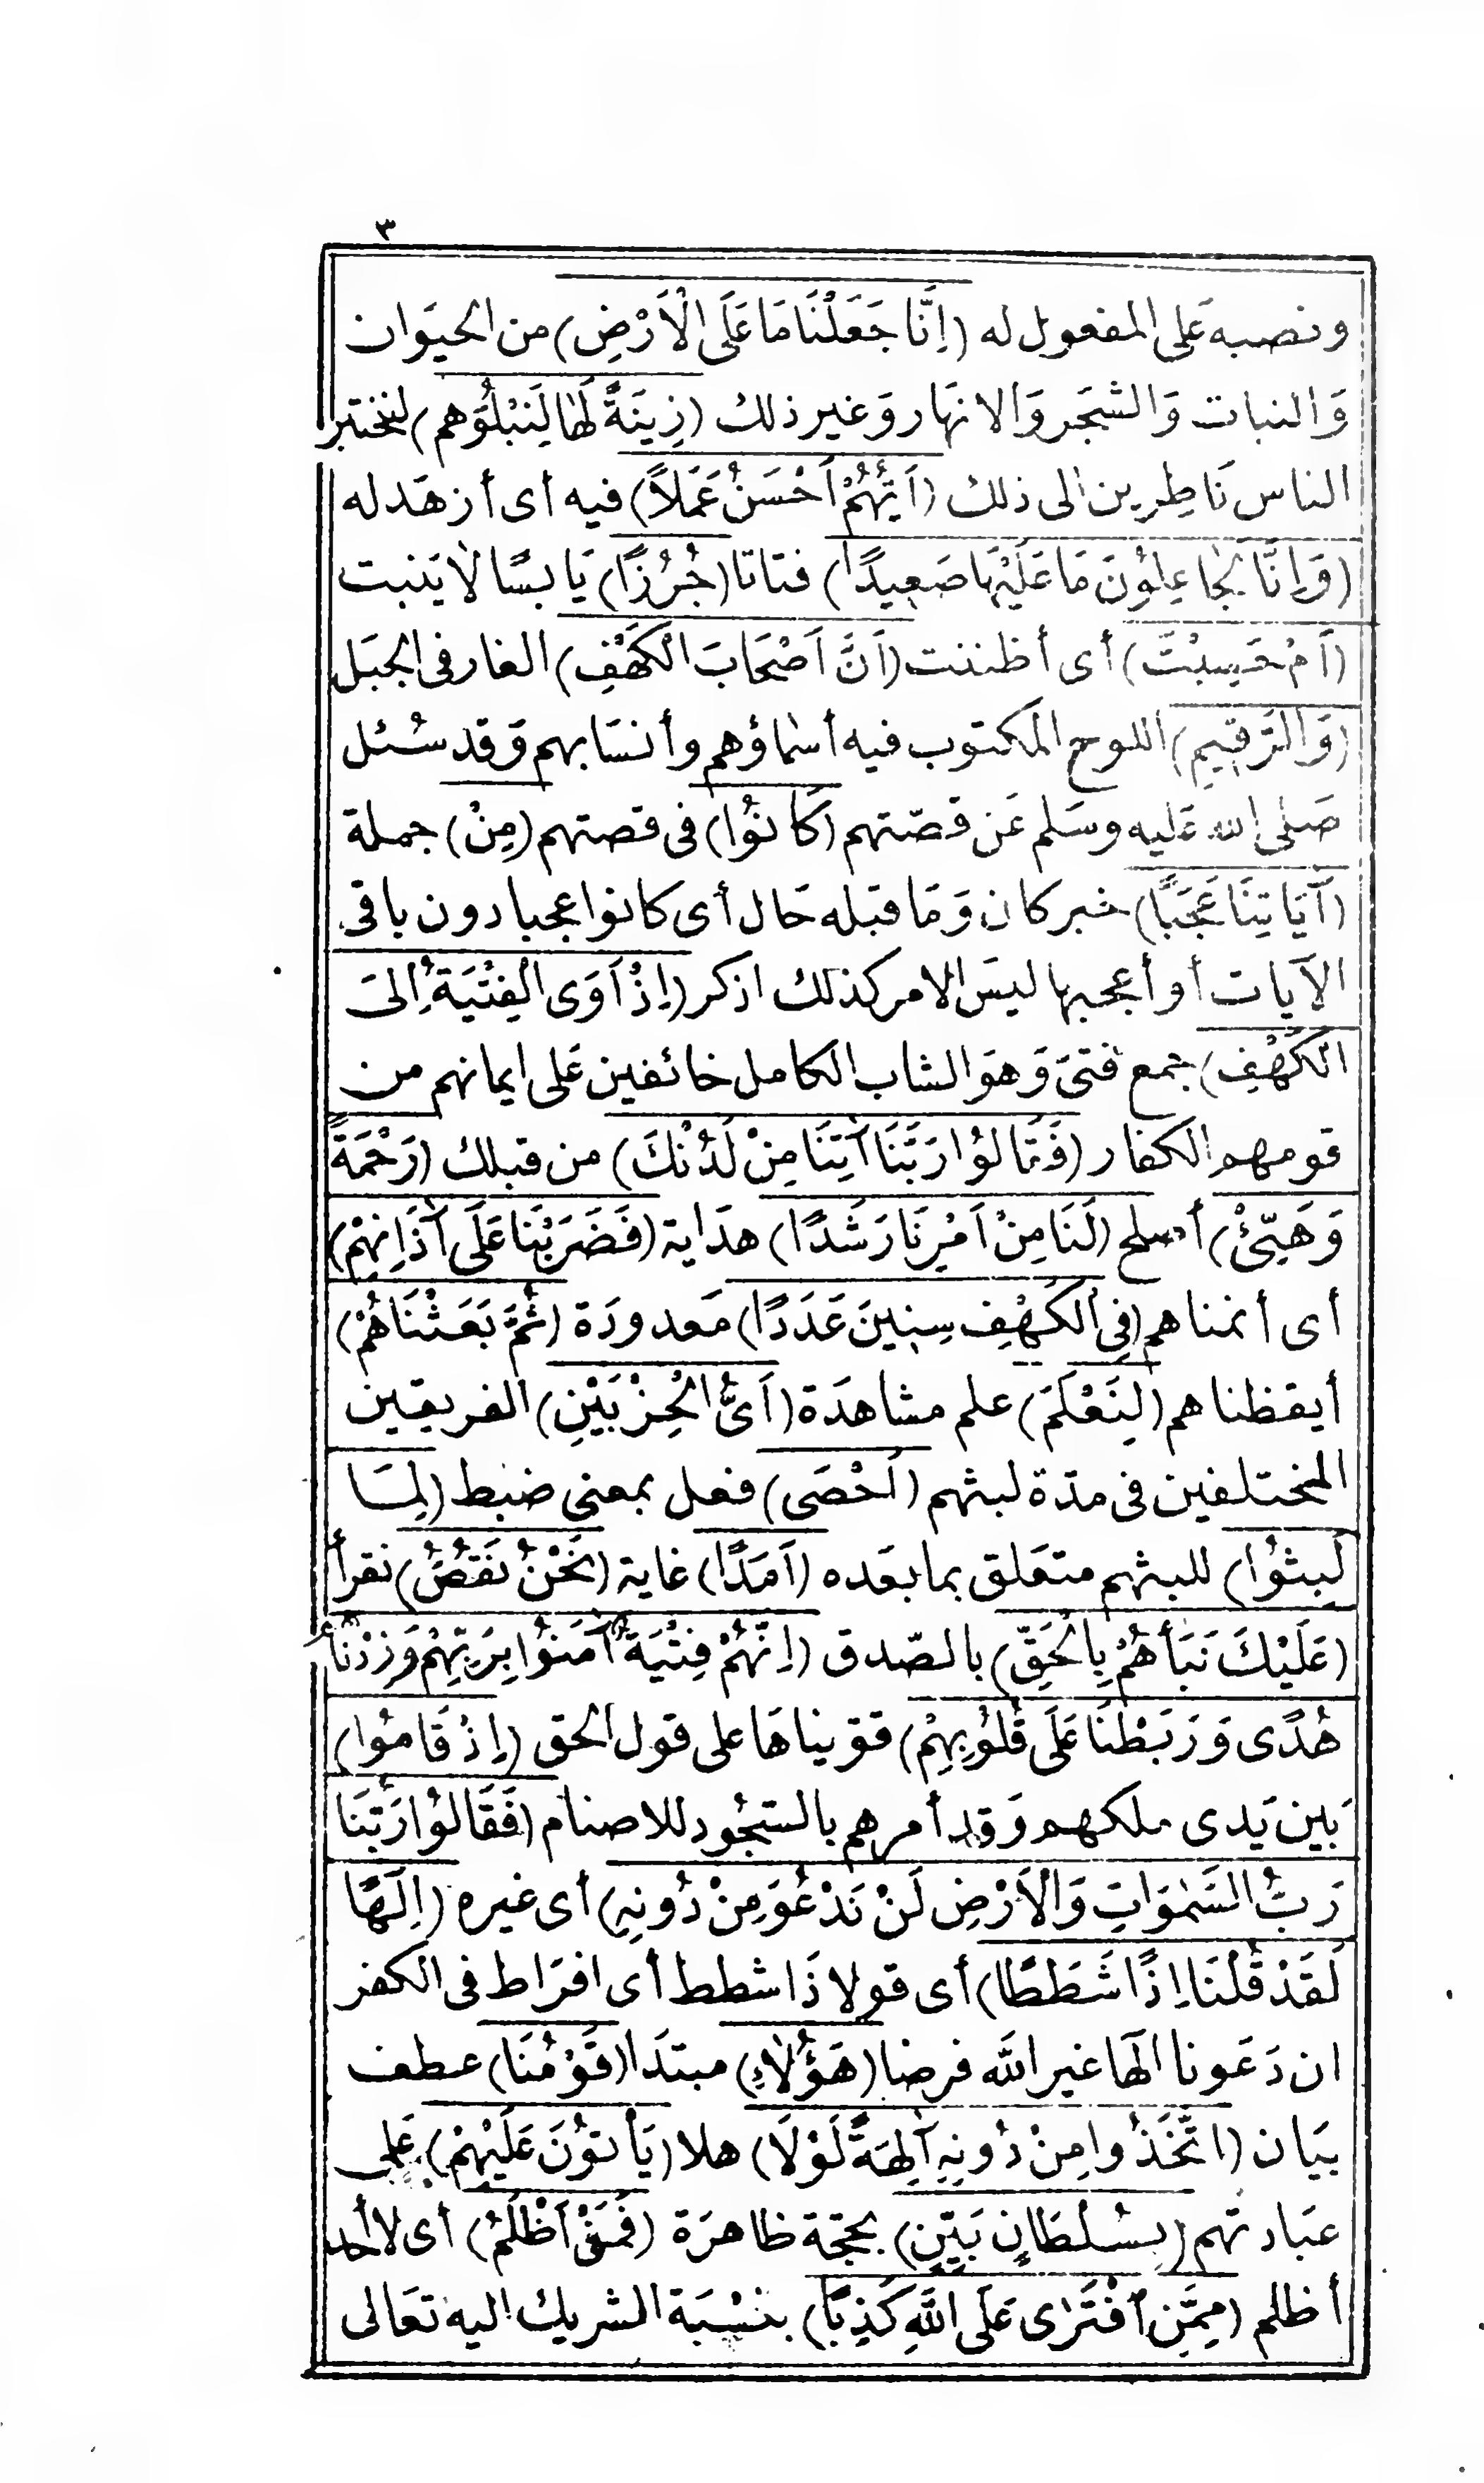 ٣
ونصبه عَلى المفعول له (اِنَّا جَعَلْنَا مَا عَلَى الْاَرْضِ) من الحيَوان
وَالنبات وَالشجَر وَالانهَار وَغير ذلك (زِينَةً لَهَا لِنَبْلُوَهم) لنختبر
الناس نَاظِرين الى ذلك (اَيُّهُمْ اَحْسَنُ عَمَلاً) فيه أى أزهَد له
(وَاِنَّا لَجَاعِلُونَ مَا عَلَيْهَا صَعِيدًا) فتاتا (جُرُزًا) يَابسًا لا يَنبت
(اَمْ حَسِبْتَ) أى أظننت (اَنَّ اَصْحَابَ الْكَهْفِ) الغار فى الجبَل
(وَالرَّقِيمِ) اللوح المكتوب فيه أسماؤهم وأنسَابهم وَقد سُئل
صَلى الله عَليه وسَلم عَن قصّتهم (كَانُوا) فى قصتهم (مِنْ) جملة
(آيَاتِنَا عَجَبًا) خبر كان وَمَا قبله حَال أى كانوا عجبا دون باقى
الآيات أو أعجبها ليسَ الامر كذلك اذكر (اِذْ اَوَى الْفِتْيَةُ اِلىَ
الْكَهْفِ) جمع فتىَ وَهوَ الشاب الكامل خائفين عَلى ايمانهم من
قومهم الكفار (فَقَالُوا رَبَّنَا آتِنَا مِنْ لَدُنْكَ) من قبلك (رَحْمَةً
وَهَيِّئْ) أصلح (لَنَا مِنْ اَمْرِنَا رَشَدًا) هدَاية (فَضَرَبْنَا عَلَى آذَانِهِمْ)
أى أنمناهم (فِى الْكَهْفِ سِنِينَ عَدَدًا) مَعدودَة (ثُمَّ بَعَثْنَاهُمْ)
أيقظناهم (لِنَعْلَمَ) علم مشاهدَة (اَىُّ الْحِزْبَيْنِ) الفريقين
المختلفين فى مدّة لبثهم (اَحْصَى) فعل بمعنى ضبط (لِمَا
لَبِثُوا) للبثهم متعَلق بما بعَده (اَمَدًا) غاية (نَحْنُ نَقُصُّ) نقرأ
(عَلَيْكَ نَبَأَهُمْ بِالْحَقِّ) بالصّدق (اِنَّهُمْ فِتْيَةٌ آمَنُوا بِرَبِّهِمْ وَزِدْنَاهُمْ
هُدًى وَرَبَطْنَا عَلَى قُلُوبِهِمْ) قوّيناهَا على قول الحق (اِذْ قَامُوا)
بَين يَدى ملكهم وَقد أمرهم بالسّجُود للاصنام (فَقَالُوا رَبُّنَا
رَبُّ السَّمٰوَاتِ وَالْاَرْضِ لَنْ نَدْعُوَ مِنْ دُونِهِ) أى غيره (اِلَهًا
لَقَدْ قُلْنَا اِذًا شَطَطًا) أى قولا ذَا شطط أى افرَاط فى الكفر
ان دَعَونا الٓها غير الله فرضا (هَؤُلَاءِ) مبتدَا (قَوْمُنَا) عطف
بيَان (اتَّخَذُوا مِنْ دُونِهِ آلِهَةً لَوْلَا) هلا (يَأتوُنَ عَلَيْهِمْ) عَلى
عبَادتهم (بِسُلْطَانٍ بَيِّنٍ) بحجّة ظاهرَة (فَمَنْ اَظْلَمُ) أى لا أحد
أظلم (مِمَّنِ افْتَرَى عَلَى اللَّهِ كَذِبًا) بنسْبَة الشريك اليه تعَالى